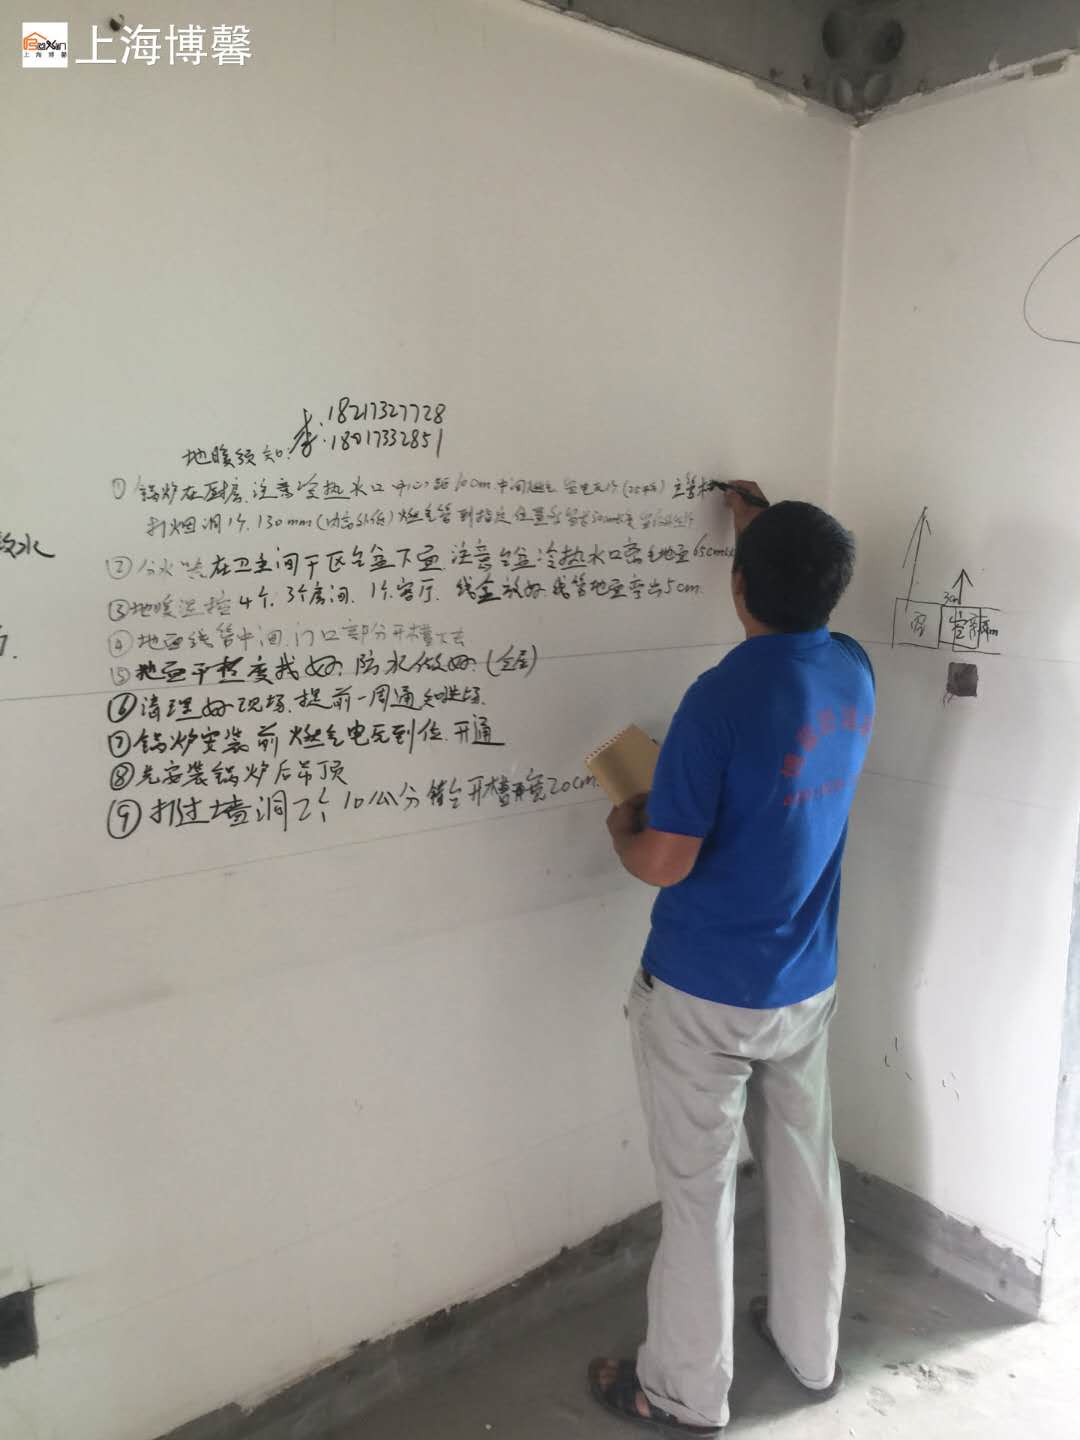 BoXin
上海博馨
上海博馨
李:18217327728
18017332851
地暖须知:
① 锅炉在厨房.注意冷热水口中心距10cm 中间燃气
打烟洞1个.130mm(内高外低)燃气管到指定位置
② 分水器在卫生间干区台盆下面 注意台盆冷热水口离毛地面65cm以
③ 地暖温控4个.3个房间.1个客厅.线盒放好.线管地面牵出5cm.
④ 地面线管中间.门口部分开槽下去
⑤ 地面平整度找好.防水做好.(全屋)
⑥ 清理好现场.提前一周通知进场.
⑦ 锅炉安装前燃气电瓦到位.开通
⑧ 先安装锅炉后吊顶
⑨ 打过墙洞2个10公分 开槽 宽20cm.
3cm